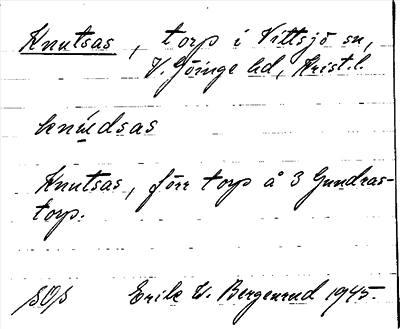 Knutsas, torp i Vittsjö sn,
V. Göinge hd, Krist. l.
knúdsas
Knutsas, förr torp å 3 Gundras-
torp.
SOS Erik W. Bergenrud 1945.